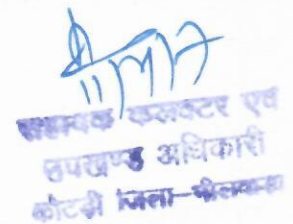 सहायक कलक्टर एवं
उपखण्ड अधिकारी
कोटडी जिला-भीलवाड़ा